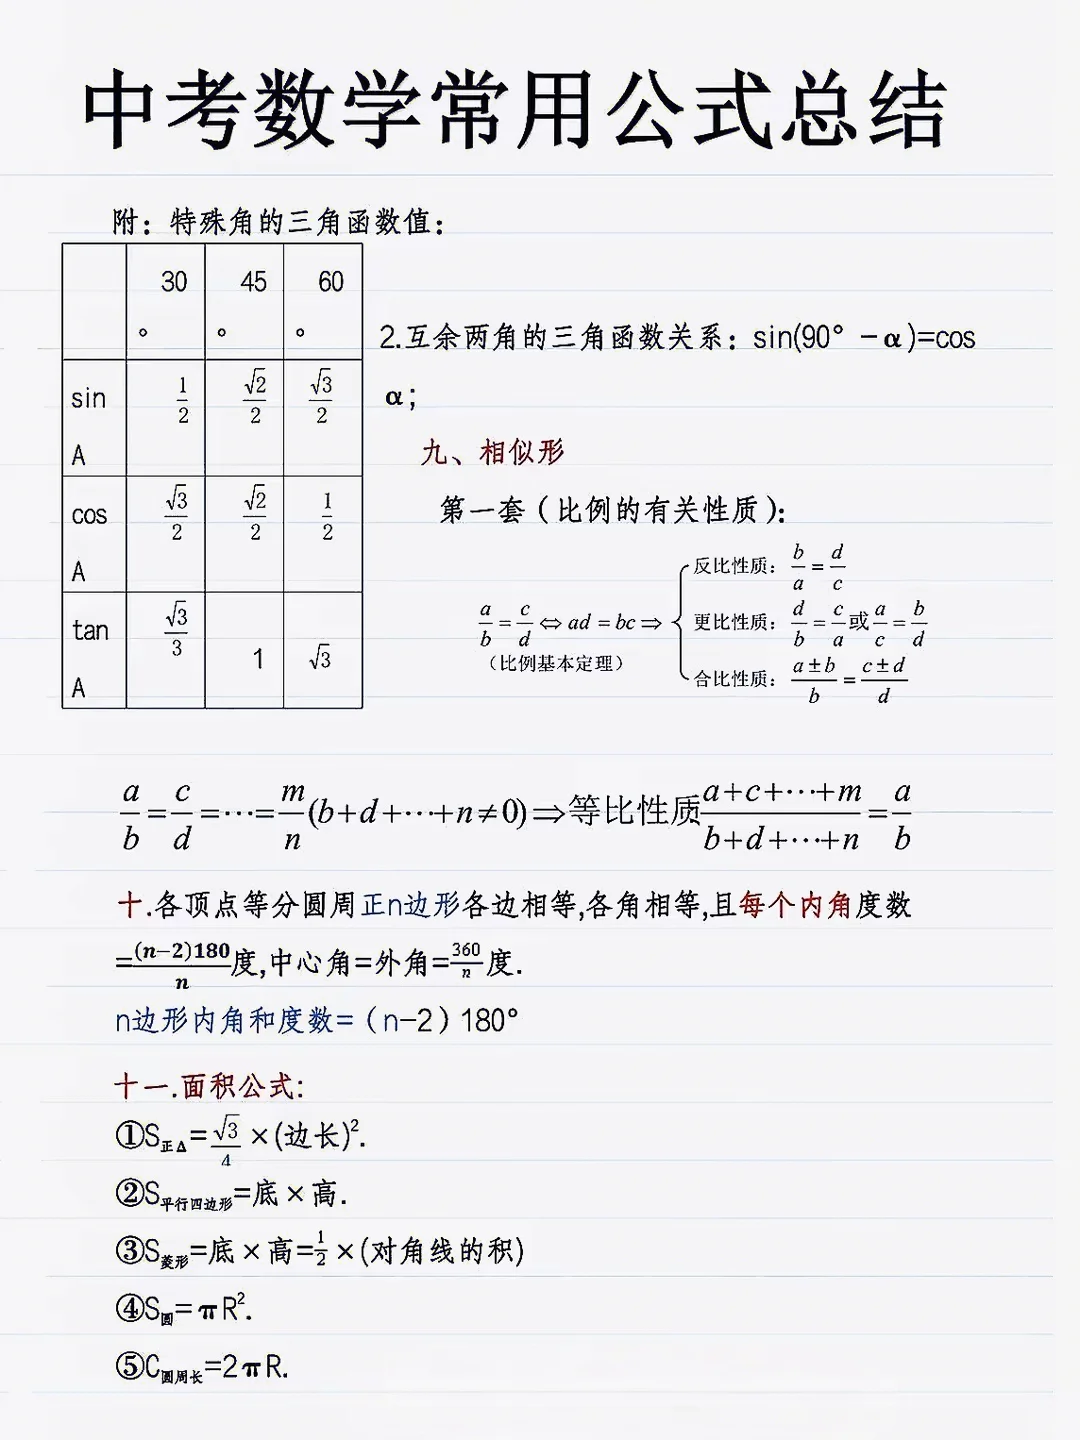 中考数学常用公式总结
附：特殊角的三角函数值：
30° 45° 60°
sin A 1/2 √2/2 √3/2
cos A √3/2 √2/2 1/2
tan A √3/3 1 √3
2.互余两角的三角函数关系：sin(90°－α)=cos
α；
九、相似形
第一套（比例的有关性质）：
a/b=c/d⇔ad=bc⇒
（比例基本定理）
反比性质：b/a=d/c
更比性质：d/b=c/a或a/c=b/d
合比性质：a±b/b=c±d/d
a/b=c/d=⋯=m/n(b+d+⋯+n≠0)⇒等比性质a+c+⋯+m/b+d+⋯+n=a/b
十.各顶点等分圆周正n边形各边相等,各角相等,且每个内角度数
=(n−2)180/n度,中心角=外角=360/n度.
n边形内角和度数=（n-2）180°
十一.面积公式:
①S正Δ=√3/4×(边长)².
②S平行四边形=底×高.
③S菱形=底×高=1/2×(对角线的积)
④S圆=πR².
⑤C圆周长=2πR.